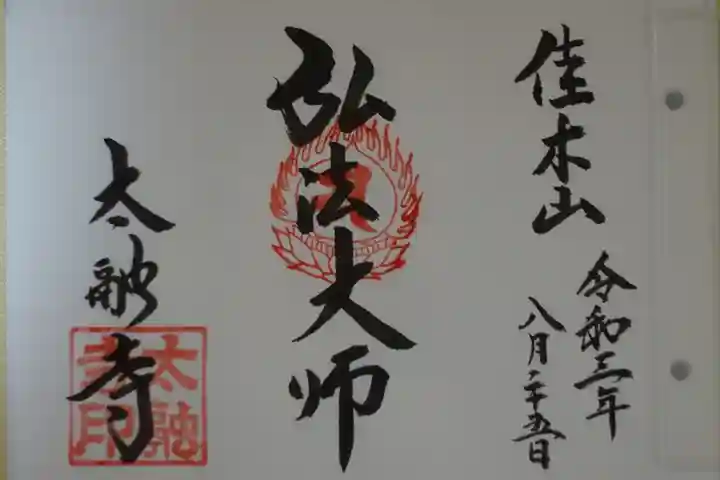 佳木山
令和三年
八月二十五日
弘法大师
太融寺
太融
寺印